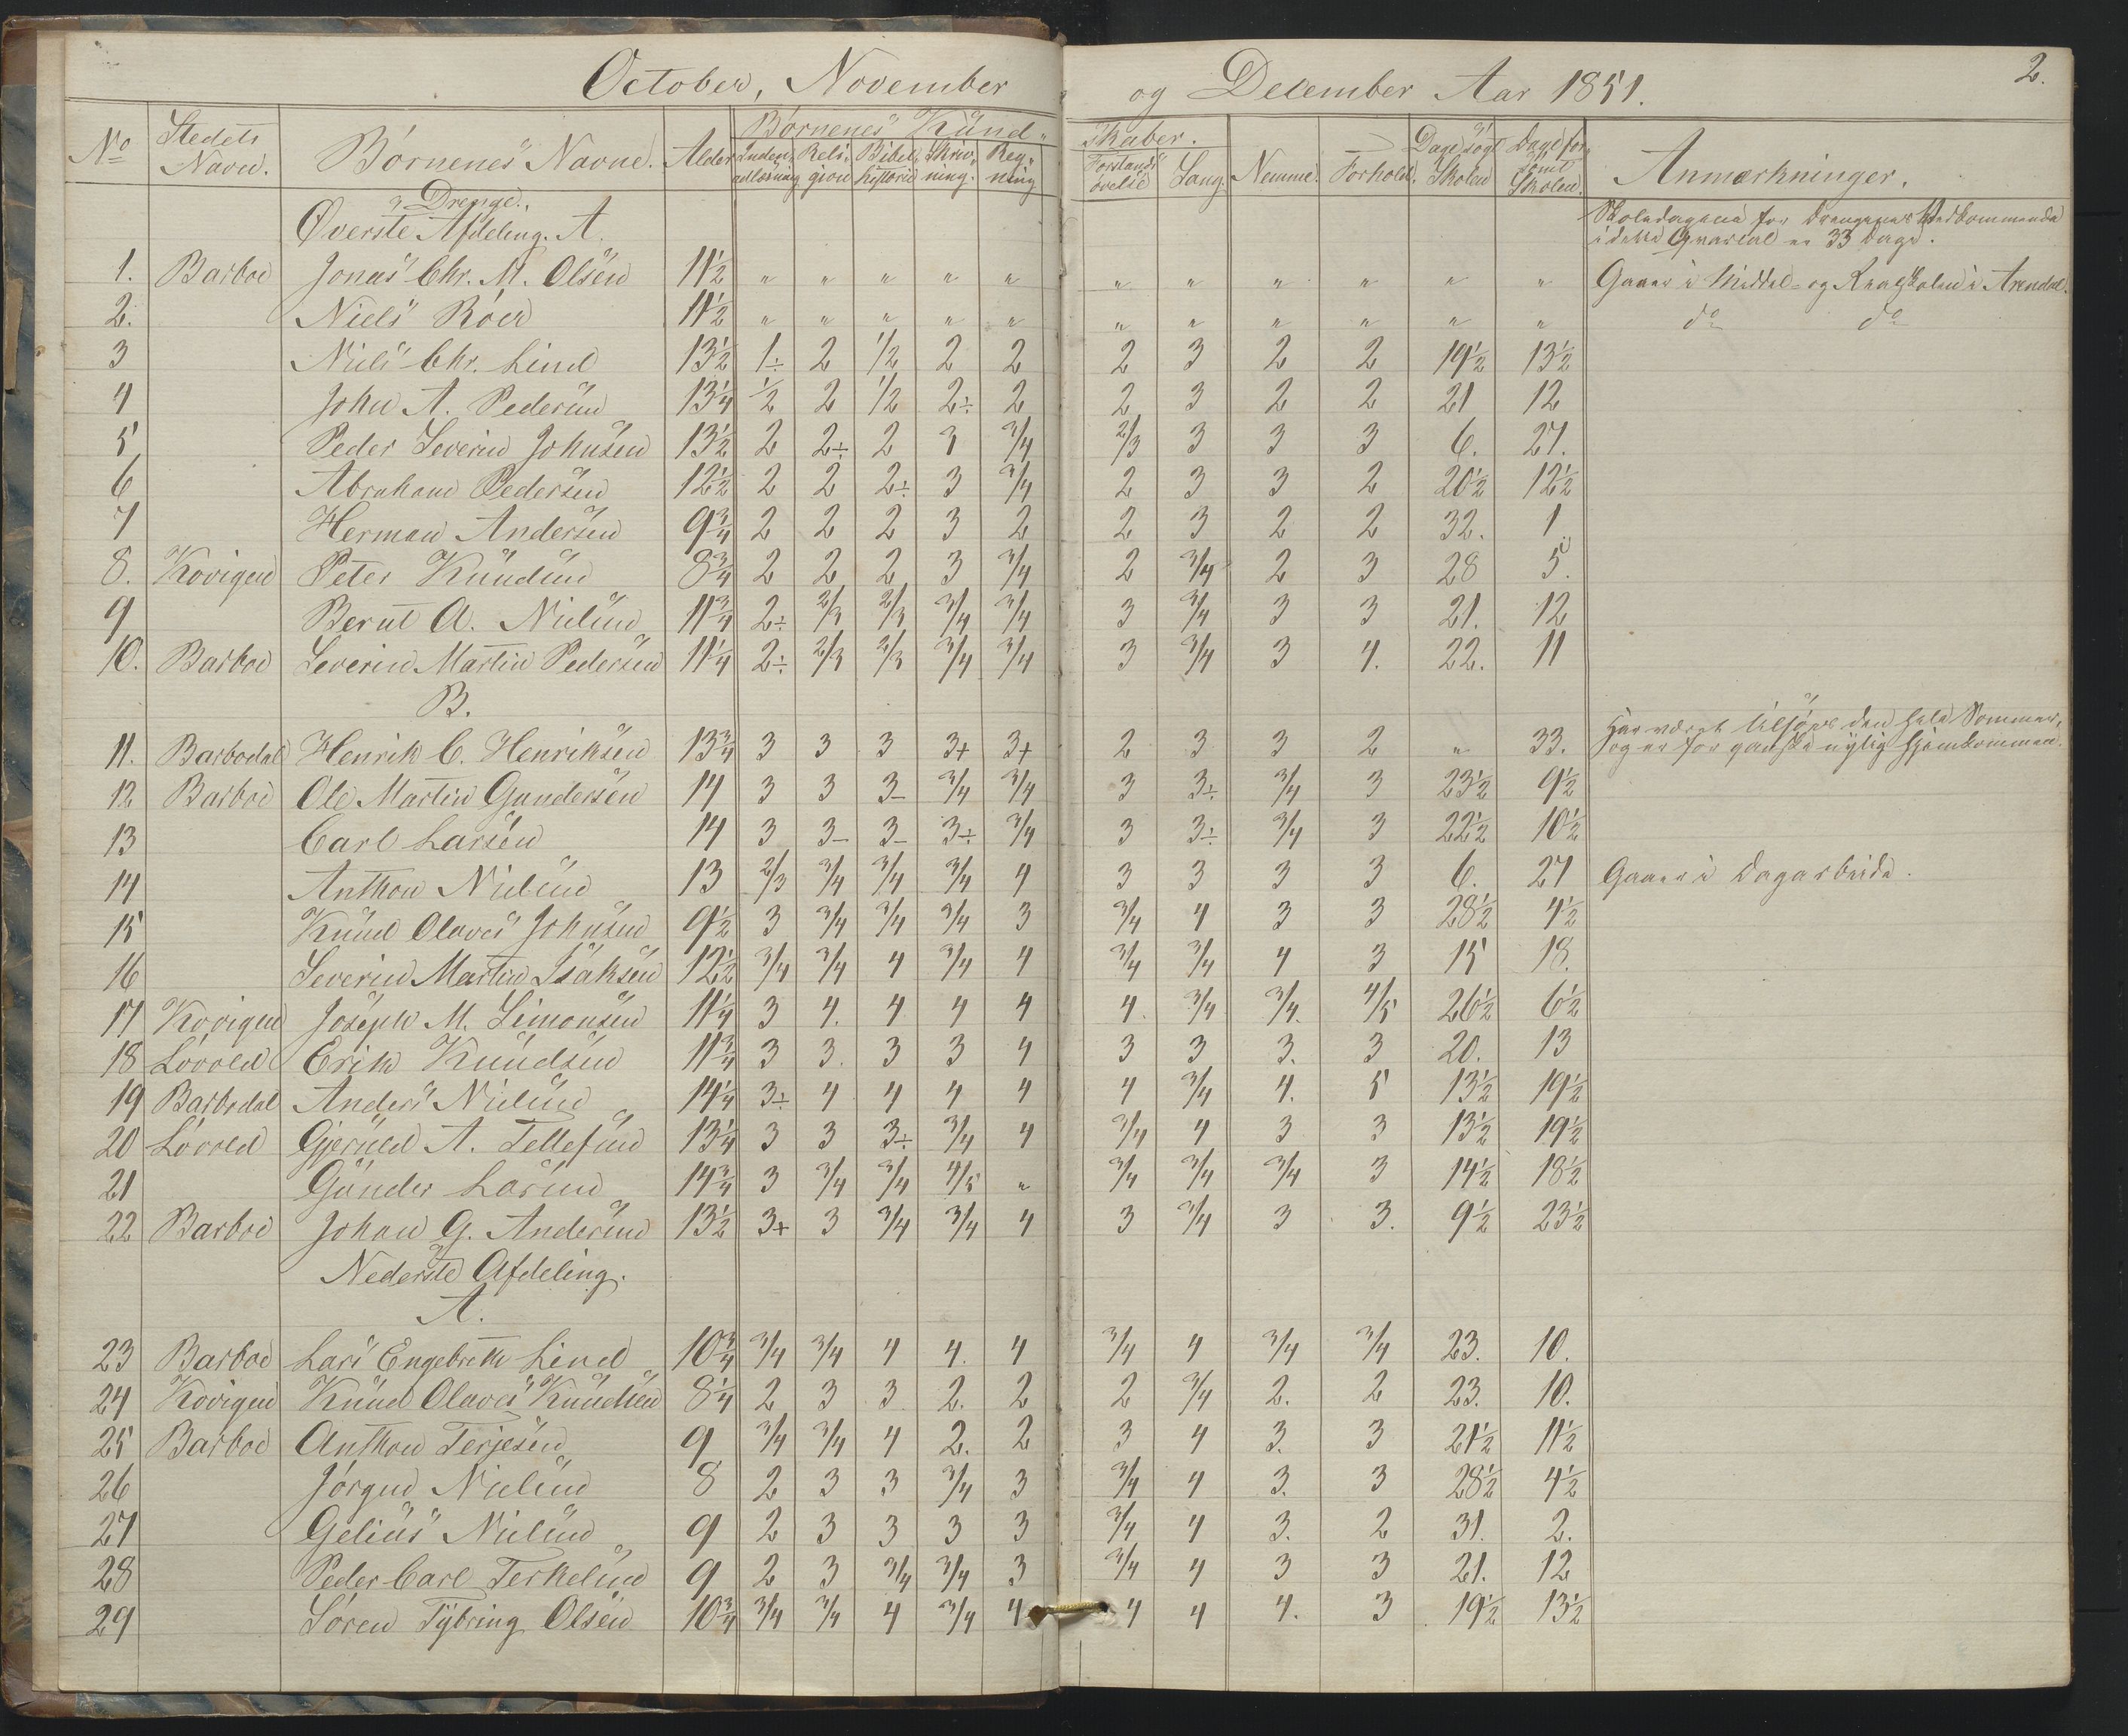 October, November og December Aar 1851. 2.
No Stedets Navn. Börnenes Navne. Alder Börnenes Kund- skaber. Nemme. Forhold. Dage sögt Skolen Dage forsömt Skolen. Anmærkninger.
Inden- adlæsning Reli- gion Bibel- historie Skriv- ning. Reg- ning Forstands- övelse Sang.
Drenge.
Øverste Afdeling. A.
Skoledagene for Drengenes Vedkommende
i dette Qvartal er 33 Dage.
1. Barboe Jonas Chr. M. Olsen 11½ " " " " " " " " " " " Gaaer i Middel- og Realskolen i Arendal.
2. Niels Röer 11½ " " " " " " " " " " " do do
3 Niels Chr. Lind 13½ 1÷ 2 1/2 2 2 2 3 2 2 19½ 13½
4 John A. Pedersen 13¼ 1/2 2 1/2 2÷ 2 2 3 2 2 21 12
5 Peder Severin Johnsen 13½ 2 2÷ 2 3 3/4 2/3 3 3 3 6. 27.
6 Abraham Pedersen 12½ 2 2 2÷ 3 3/4 2 3 3 2 20½ 12½
7 Herman Andersen 9¾ 2 2 2 3 2 2 3 2 2 32. 1.
8. Kovigen Peter Knudsen 8¾ 2 2 2 3 3/4 2 3/4 2 3 28 5.
9 Bernt A. Nielsen 11¾ 2÷ 2/3 2/3 3/4 3/4 3 3/4 3 3 21. 12
10. Barboe Severin Martin Pedersen 11¼ 2÷ 2/3 2/3 3/4 3/4 3 3/4 3 4. 22. 11
B.
11. Barbodal Henrik C. Henriksen 13¾ 3 3 3 3+ 3+ 2 3 3 2 " 33. Har været tilsöes den hele Sommer,
og er for ganske nylig hjemkommen.
12 Barboe Ole Martin Gundersen 14 3 3 3- 3/4 3/4 3 3÷ 3/4 3 23½ 9½
13 Carl Larsen 14 3 3- 3- 3÷ 3/4 3 3÷ 3/4 3 22½ 10½
14 Anthon Nielsen 13 2/3 3/4 3/4 3/4 4 3 3 3 3 6. 27 Gaaer i Dagarbeide.
15 Knud Olaves Johnsen 9½ 3 3/4 3/4 3/4 3 3/4 4 3 3 28½ 4½
16 Severin Martin Isaksen 12½ 3/4 3/4 4 3/4 4 3/4 3/4 4 3 15 18.
17 Kovigen Joseph M. Simonsen 11¼ 3 4. 4 4 4 4. 3/4 3/4. 4/5 26½ 6½
18 Lövold Erik Knudsen 11¾ 3 3. 3 3 4 3 3 3. 3 20. 13
19 Barbodal Anders Nielsen 14¼ 3÷ 4 4 4 4 4 3/4 4. 5 13½ 19½
20 Lövold Gjeruld A. Tellefsen 13¼ 3 3 3÷ 3/4 4 3/4 4 3 3 13½ 19½
21 Gunder Larsen 14¾ 3 3/4 3/4 4/5 " 3/4 3/4 3/4 3 14½ 18½
22 Barboe Johan G. Andersen 13½ 3+ 3 3/4 3/4 4 3 3/4 3 3. 9½ 23½
Nederste Afdeling.
A.
23 Barboe Lars Engebreth Lind 10¾ 3/4 3/4 4 4. 4 3/4 4 3/4 3/4 23. 10.
24 Kovigen Knud Olaves Knudsen 8¼ 2 3 3 2. 2 2 3/4 2. 2 23. 10.
25 Barboe Anthon Terjesen 9 3/4 3/4 4 2. 2 3 4 3. 3 21½ 11½
26 Jörgen Nielsen 8 2 3 3 3/4 3 3/4 4 3. 3 28½ 4½
27 Gelius Nielsen 9 2 3 3 3 3 3/4 4 3. 2 31. 2.
28 Peder Carl Terkelsen 9 2 3 3/4 3/4 3 3/4 4 3 3 21. 12
29 Sören Tybring Olsen 10¾ 3/4 3/4 4 3/4 4 4 4 4. 3 19½ 13½